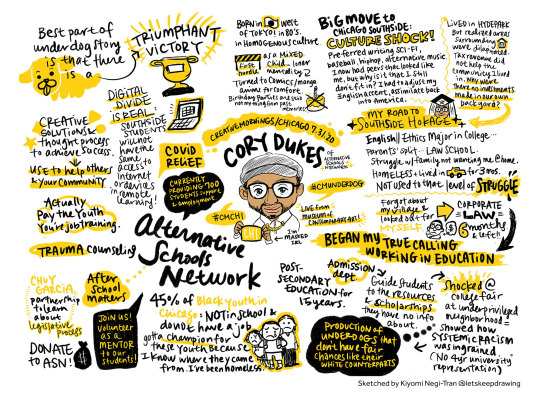 Best part of
underdog story
is that there
is a
TRIUMPHANT
VICTORY
DIGITAL
DIVIDE
IS REAL:
SOUTHSIDE
STUDENTS
will not
have the
same
access to
internet
or devices
in remote
learning!
CREATIVE
SOLUTIONS &
thought process
to achieve success.
use to help others
& your community
Actually
Pay the Youth
you're job training.
TRAUMA counseling
CHUY
GARCIA
partnership
to learn
about
legislative
process
After
School
matters
DONATE
to ASN!
JOIN US!
volunteer
as a
MENTOR
to our
students!
COVID
RELIEF
CURRENTLY
PROVIDING 700
STUDENTS support
& employment
Alternative
Schools
Network
45% of Black youth in
Chicago = NOT in school &
do not have a job
gotta champion for
these youth because
I know where they came
from. I've been homeless.
BORN in west
of TOKYO! in 80's.
in HOMOGENOUS culture
first
mixed
Child. loner
mentality
Turned to Comics/manga
anime for comfort.
CREATIVEMORNINGS/CHICAGO 7.31.20
CORY DUKES
OF
ALTERNATIVE
SCHOOLS
NETWORK
#CMUNDERDOG
#CMCHI
CHI
LIVE from
museum of
I'm
MASKED
POST-
SECONDARY
EDUCATION for
15 years.
BIG MOVE to
CHICAGO SOUTHSIDE:
CULTURE SHOCK!
Preferred writing SCI-FI,
baseball, hiphop, alternative music.
I now had peers that looked like
me, but why is it that I still
don't fit in? I had to adjust my
English accent, assimilate back
into America.
Lived in HYDEPARK
But realized areas
surrounding
were dilapidated
Tax revenue did
not help the
community I lived
in. Why were
there no investments
made in our own
back yard?
MY ROAD to
SOUTHSIDE HOKAGE
English / Ethics Major in College...
Parents' split - LAW SCHOOL.
Struggle w/ family not wanting me @ home.
HOMELESS + lived in for 3 mos.
NOT used to that level of STRUGGLE
Forgot about
my village &
looked out for
MYSELF
CORPORATE
= LAW =
2 months
& left!!
BEGAN MY TRUE CALLING
WORKING IN EDUCATION
ADMISSION
dept.
Guide students
to the resources
& scholarships
they have no info
about.
Shocked @
college fair
at underprivileged
neighborhood =
showed how
SYSTEMIC RACISM
was ingrained.
(NO 4yr university
representation)
PRODUCTION OF
UNDERDOGS that
don't have fair
chances like their
WHITE COUNTERPARTS
Sketched by Kiyomi Negi-Tran @letskeepdrawing